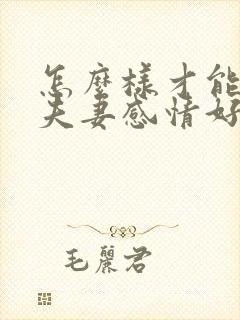 怎麼樣才能
夫妻感情好
毛麗君